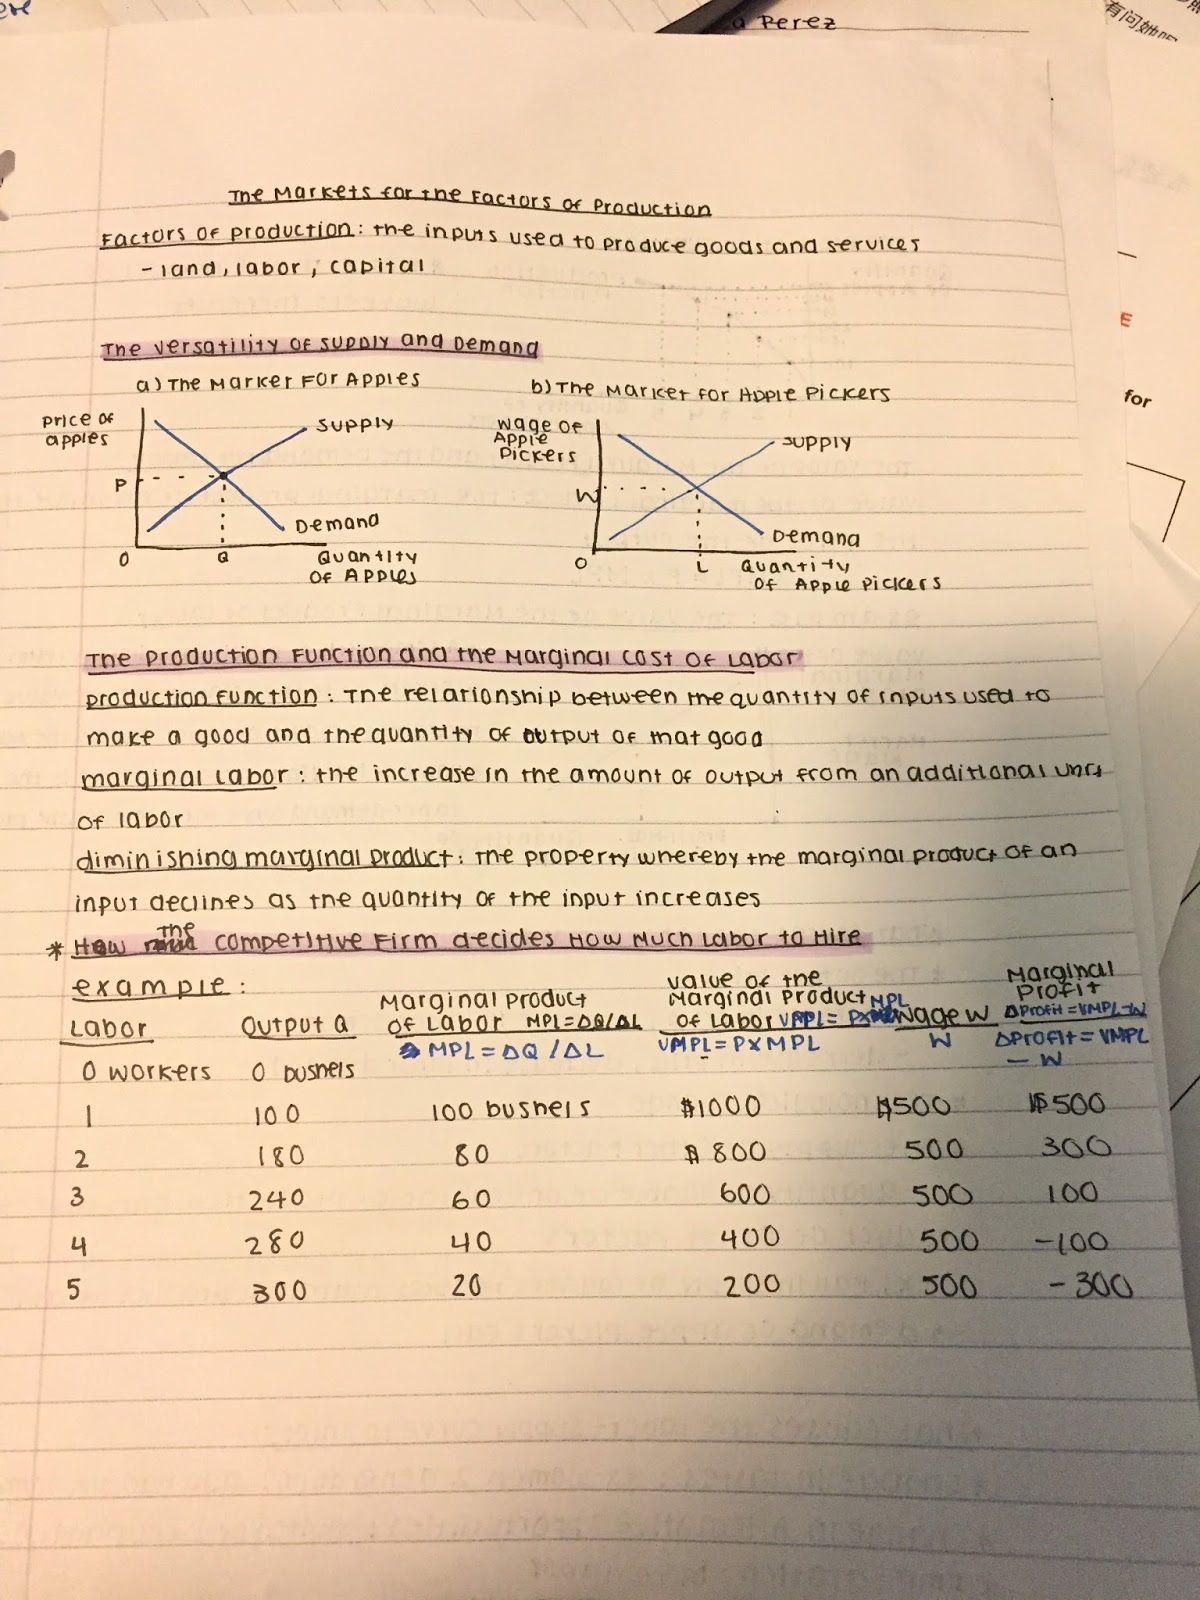 ere
a Perez
有问她
E
for
The Markets for the Factors of Production
Factors of production: the inputs used to produce goods and services
- land, labor, capital
The versatility of supply and Demand
a) The Market For Apples
b) The Market for Apple Pickers
Price of
apples
Supply
P
Demand
0
Q
Quantity
of Apples
Wage of
Apple
Pickers
Supply
W
Demand
0
L
Quantity
of Apple Pickers
The Production Function and the Marginal Cost of Labor
production function: The relationship between the quantity of inputs used to
make a good and the quantity of output of that good
marginal labor: the increase in the amount of output from an additional unit
of labor
diminishing marginal product: the property whereby the marginal product of an
input declines as the quantity of the input increases
* How the competitive Firm decides How Much Labor to Hire
example:
Labor
Output Q
Marginal Product
of Labor MPL=ΔQ/ΔL
MPL = ΔQ / ΔL
Value of the
Marginal Product MPL
of Labor VMPL= PX
VMPL = P X MPL
Wage W
W
Marginal
Profit
ΔProfit = VMPL-W
ΔProfit = VMPL
- W
0 workers 0 bushels
1 100 100 bushels $1000 $500 $500
2 180 80 $800 500 300
3 240 60 600 500 100
4 280 40 400 500 -100
5 300 20 200 500 -300